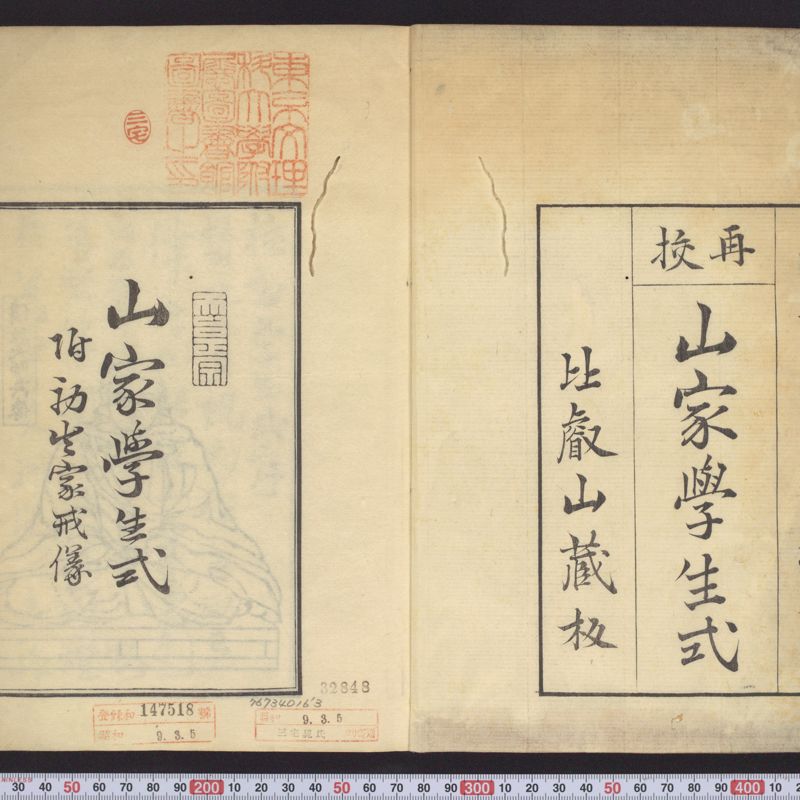 再校
山家學生式
比叡山藏板
東京文理
科大學附
屬圖書館
圖書之印
三宅
山家學生式
附初出家戒儀
32848
147518 號
昭和 9.3.5
昭和 9.3.5
10 20 30 40 50 60 70 80 90 200 10 20 30 40 50 60 70 80 90 300 10 20 30 40 50 60 70 80 90 400 10